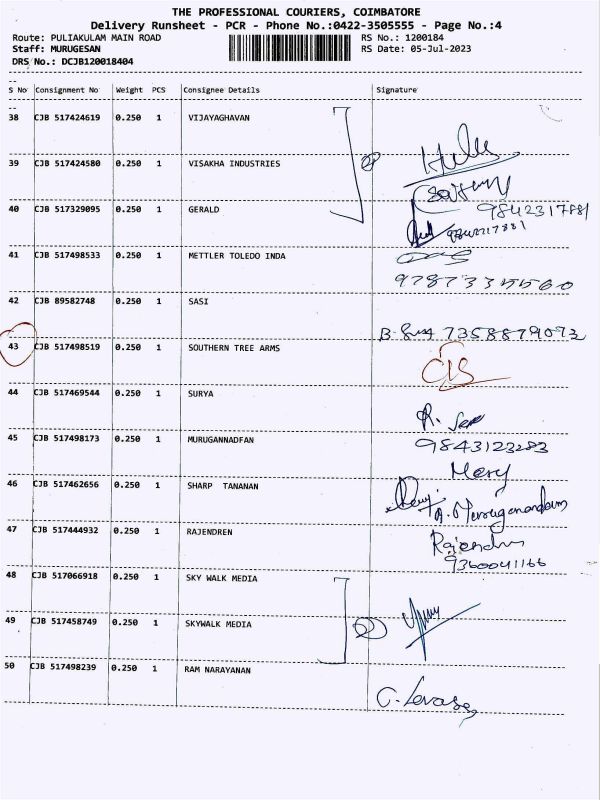 THE PROFESSIONAL COURIERS, COIMBATORE
Delivery Runsheet - PCR - Phone No.:0422-3505555 - Page No.:4
Route: PULIAKULAM MAIN ROAD RS No.: 1200184
Staff: MURUGESAN RS Date: 05-Jul-2023
DRS No.: DCJB120018404
S No Consignment No Weight PCS Consignee Details Signature
38 CJB 517424619 0.250 1 VIJAYAGHAVAN
39 CJB 517424580 0.250 1 VISAKHA INDUSTRIES
40 CJB 517329095 0.250 1 GERALD 9842317881
41 CJB 517498533 0.250 1 METTLER TOLEDO INDA
42 CJB 89582748 0.250 1 SASI
7358879073
43 CJB 517498519 0.250 1 SOUTHERN TREE ARMS
44 CJB 517469544 0.250 1 SURYA
R.
45 CJB 517498173 0.250 1 MURUGANNADFAN 9843123283
Mary
46 CJB 517462656 0.250 1 SHARP TANANAN
A. Muruganandam
47 CJB 517444932 0.250 1 RAJENDREN Rajendran
9360041166
48 CJB 517066918 0.250 1 SKY WALK MEDIA
49 CJB 517458749 0.250 1 SKYWALK MEDIA
50 CJB 517498239 0.250 1 RAM NARAYANAN